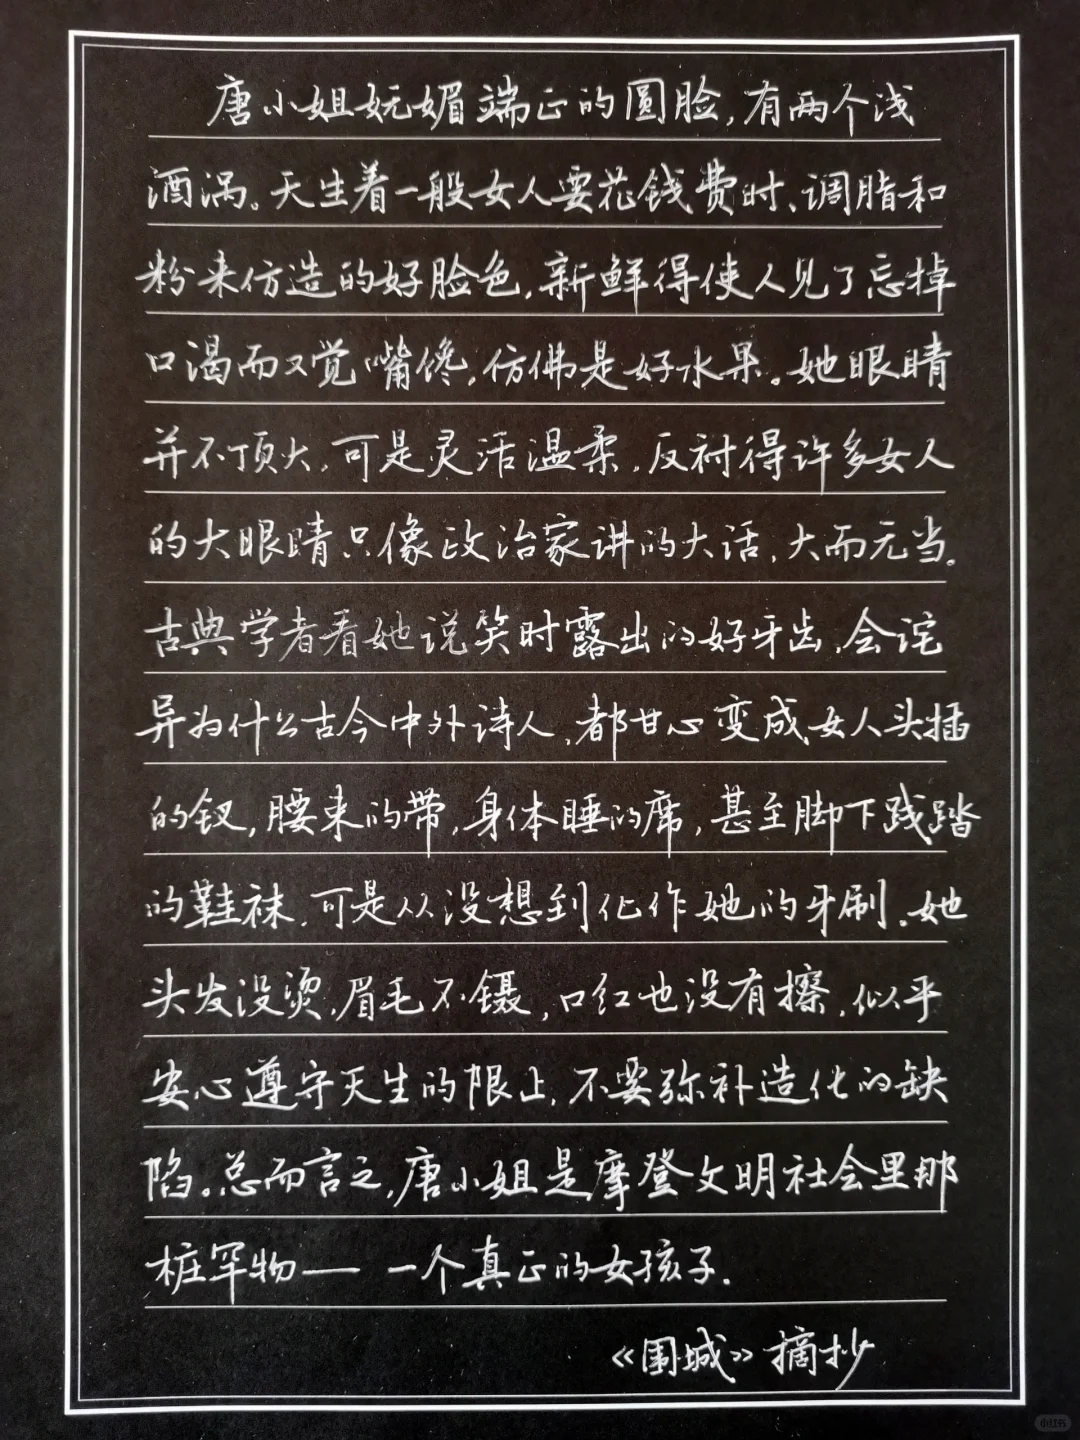 唐小姐妩媚端正的圆脸，有两个浅
酒涡。天生着一般女人要花钱费时、调脂和
粉来仿造的好脸色，新鲜得使人见了忘掉
口渴而又觉嘴馋，仿佛是好水果。她眼睛
并不顶大，可是灵活温柔，反衬得许多女人
的大眼睛只像政治家讲的大话，大而无当。
古典学者看她说笑时露出的好牙齿，会诧
异为什么古今中外诗人，都甘心变成女人头插
的钗，腰束的带，身体睡的席，甚至脚下践踏
的鞋袜，可是从没想到化作她的牙刷。她
头发没烫，眉毛不镊，口红也没有擦，似乎
安心遵守天生的限止，不要弥补造化的缺
陷。总而言之，唐小姐是摩登文明社会里那
桩罕物——一个真正的女孩子。
《围城》摘抄
小红书